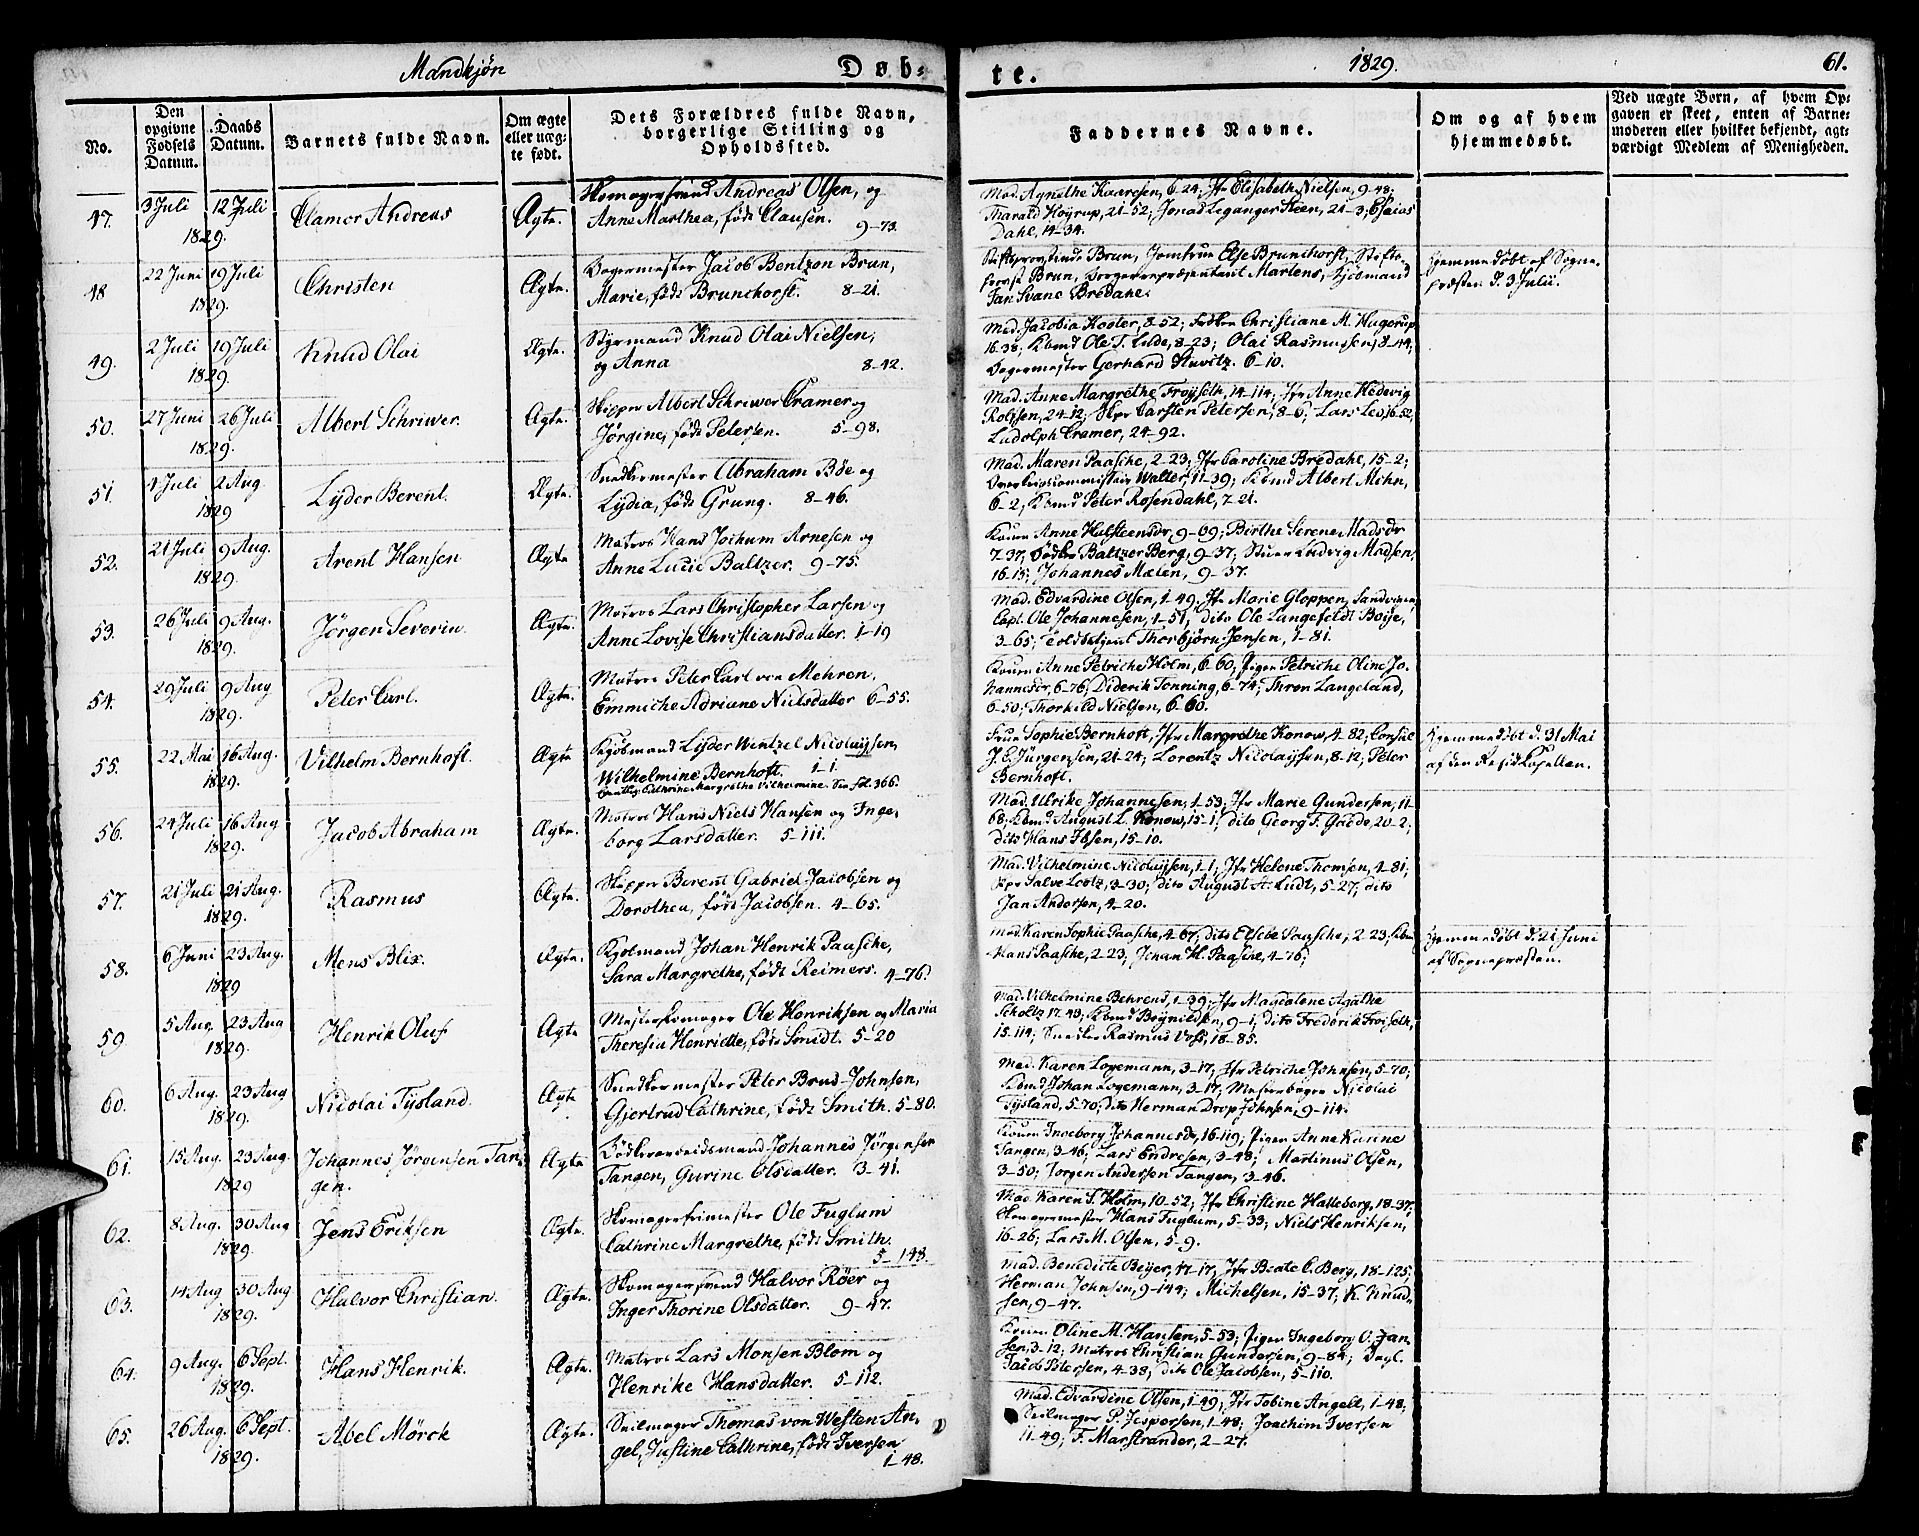 Mandkjøn
Døb-
te.
1829.
61.
No.
Den
opgivne
Fødsels
Datum.
Daabs
Datum.
Barnets fulde Navn.
Om ægte
eller uæg-
te født.
Dets Forældres fulde Navn,
borgerlige Stilling og
Opholdssted.
Faddernes Navne.
Om og af hvem
hjemmedøbt.
Ved uægte Børn, af hvem Op-
gaven er skeet, enten af Barne-
moderen eller hvilket bekjendt, agt-
værdigt Medlem af Menigheden.
47. 3 Juli 12 Juli
1829.
Clamer Andreas
Ægte.
Skomagersvend Andreas Olsen, og
Anne Marthea, føde Clausen.
9-73.
Mad. Agnethe Kaaresen, 6-24; Jfr Elisabeth Nielsen, 9-48;
Tharald Høyrup, 21-52; Jonas Leganger Steen, 21-3; Esaias
Dahl, 14-34.
48 22 Juni 19 Juli
1829.
Christen
Ægte.
Bagermester Jacob Bentzon Brun,
Marie, føde Brunchorst. 8-21.
Stiftsprovstinde Brun, Jomfrue Else Brunchorst, Stifts-
provst Brun, Borgerrepræsentant Martens,
Jan Svane Bredahl.
Hjemmedøbt af Sogne-
præsten d. 3 Julii.
49. 2 Juli 19 Juli
1829.
Knud Olai
Ægte.
Styrmand Knud Olai Nielsen,
og Anna 8-42.
Mad. Jacobia Koster, 8-52; Christiane M. Hugerup
16-38; Kbmd Ole T. Lilde, 8-23; Olai Rasmussen, 8-44;
Bagermester Gerhard Stuvitz. 6-10.
50. 27 Juni 26 Juli
1829.
Albert Schriwer.
Ægte.
Skipper Albert Schriwer Cramer og
Jørgine, føde Petersen. 5-98.
Mad. Anne Margrethe Frøyseth, 14-114; Jfr Anne Hedevig
24-12; Skpr Carsten Petersen, 8-6; Lars Lea, 16-52,
Ludolph Cramer, 24-92.
51. 1 Juli 2 Aug.
1829
Lyder Berent.
Ægte.
Snedkermester Abraham Bøe og
Lydia, føde Grung. 8-46.
Mad. Maren Paasche, 2-23; Jfr Caroline Bredahl, 15-2;
Walter, 11-39; Kbmd Albert Mehn,
6-2, Kbmd Peter Rosendahl, 7-21.
52. 21 Juli 9 Aug.
1829.
Arent Hansen
Ægte
Matros Hans Jochum Arnesen og
Anne Lucie Baltzer. 9-75.
Konen Anne Halsteensdr, 9-69; Birthe Serene Madsdr
7-37, Baltzer Berg, 9-37; Ludvig Madsen,
16-15; Johannes Mælen, 9-37.
53. 26 Juli 9 Aug.
1829.
Jørgen Severin.
Ægte.
Matros Lars Christopher Larsen og
Anne Lovise Christiansdatter. 1-19
Mad. Edvardine Olsen, 1-49, Jfr Marie Gloppen, Sandviken,
Capt. Ole Johannesen, 1-51, dito Ole Langefeldt Boije,
3-65; Toldbetjent Thorbjørn Jensen, 1-81.
54. 29 Juli 9 Aug
1829.
Peter Carl.
Ægte.
Matros Peter Carl von Mehren.
Emmiche Adriane Nielsdatter 6-55.
Konen Anne Petriche Holm, 6-60; Pigen Petriche Oline Jo-
hannesdr, 6-76; Diderik Tenning, 6-74; Thron Langeland,
6-50; Thorkild Nielsen, 6-60.
55. 22 Mai 16 Aug.
1829.
Vilhelm Bernhoft.
Ægte
Kjøbmand Lyder Wentzel Nicolaysen,
Wilhelmine Bernhoft. 1-1.
Cathrine Margrethe Vilhelmine. See fol. 366.
Frue Sophie Bernhoft, Jfr Margrethe Konow, 4-82; Consul
J. E. Jürgensen, 21-24; Lorentz Nicolaysen, 8-12; Peter
Bernhoft.
Hjemmedøbt d. 31 Mai
af den Resid. Kapellan.
56. 24 Juli 16 Aug
1829.
Jacob Abraham
Ægte.
Matros Hans Niels Hansen og Inge-
borg Larsdatter. 5-111.
Mad. Ulrike Johannesen, 1-53; Jfr Marie Gundersen, 11-
68; Kbmd August L. Konow, 15-1; dito Georg F. Gaede, 20-2;
dito Hans Ibsen, 15-10.
57. 21 Juli 21 Aug.
1829.
Rasmus
Ægte.
Skipper Berent Gabriel Jacobsen og
Dorothea, føde Jacobsen. 4-65.
Mad. Vilhelmine Nicolaysen, 1-1; Jfr Helene Thomsen, 4-81,
Skpr Salve Lootz, 3-30; dito August A. Ludt, 5-27, dito
Jan Andersen, 4-20.
58. 6 Juni 23 Aug.
1829
Mens Blix.
Ægte.
Kjøbmand Johan Henrik Paasche,
Sara Margrethe, født Reimers. 4-76.
Mad. Karen Sophie Paasche, 4-67; dito Elsebe Paasche, 2-23, Kbmd
Hans Paasche, 2-23; Johan H. Paasche, 4-76;
Hjemmedøbt d. 21 Juni
af Sognepræsten.
59 5 Aug. 23 Aug
1829.
Henrik Oluf
Ægte
Mesterskomager Ole Henriksen og Maria
Theresia Henriette, føde Smidt. 5-20
Mad. Vilhelmine Behrens, 1-39; Jfr Magdalene Agathe
Scholtz 17-49; Kbmd Brynildsen, 9-1; dito Frederik Froiseth,
15-114; Snedker Rasmus Vess, 18-85.
60. 6 Aug. 23 Aug
1829.
Nicolai Tysland.
Ægte
Snedkermester Peter Brud Johnsen,
Gjertrud Cathrine, føde Smith. 5-80.
Mad. Karen Logemann, 3-17; Jfr Petriche Johnsen, 5-70;
Kbmd Johan Logemann, 3-17; Mesterbager Nicolai
Tysland, 5-70; dito Herman Drop Johnsen, 9-114.
61. 15 Aug. 23 Aug.
1829
Johannes Jørgensen Tan-
gen.
Ægte.
Bødkerarbeidsmand Johannes Jørgensen
Tangen, Gurine Olsdatter. 3-41.
Konen Ingeborg Johannesdr, 16-119; Pigen Anne Karine
Tangen, 3-46; Lars Endresen, 3-48; Martinus Olsen,
3-50; Jørgen Andersen Tangen, 3-46.
62. 8 Aug. 30 Aug
1829.
Jens Eriksen
Ægte.
Skomagerfrimester Ole Fuglum
Cathrine Margrethe, føde Smith.
5-148.
Mad. Karen S. Holm, 10-52; Jfr Christine Halleborg, 18-37;
Skomagermester Hans Fuglum, 5-33; Niels Henriksen,
16-26; Lars M. Olsen, 5-9.
63. 14 Aug 30 Aug
1829.
Halvor Christian.
Ægte.
Skomagersvend Halvor Røer og
Inger Thorine Olsdatter. 9-47.
Mad. Benedicte Beyer, 17-17, Jfr Beate C. Berg, 18-125;
Herman Johnsen, 9-144; Michelsen, 15-37; K. Knud-
sen, 9-47.
64. 9 Aug. 6 Sept.
1829.
Hans Henrik.
Ægte.
Matros Lars Monsen Blom og
Henrike Hansdatter. 5-112.
Konen Oline M. Hansen, 5-53; Pigen Ingeborg O. Jan-
sen, 3-12; Matros Christian Gundersen, 9-84; Dagl.
Jacob Petersen, 4-38; dito Ole Jacobsen, 5-110.
65. 26 Aug. 6 Sept.
1829.
Abel Mörck
Ægte.
Seilmager Thomas von Westen An-
gel, Justine Cathrine, føde Iversen
1-48.
Mad. Edvardine Olsen, 1-49; Jfr Tobine Angell, 1-48;
Seilmager P. Jespersen, 1-48; Joachim Iversen
11-49; F. Marstrander, 2-27.